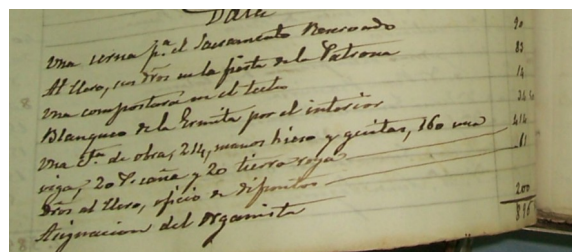 Data
Una cerna pª el Sacramento Renovado 20
Al Clero, sus Dros en la fiesta de la Patrona 85
Una compostura en el techo 14
Blanqueo de la Ermita por el interior
Una Cta de obra, 214, manos hieso y guitas, 160 una 414
viga, 20 T. caña y 20 tierra roja
Dros al Clero, oficio de difuntos
Asignacion del Organista 200